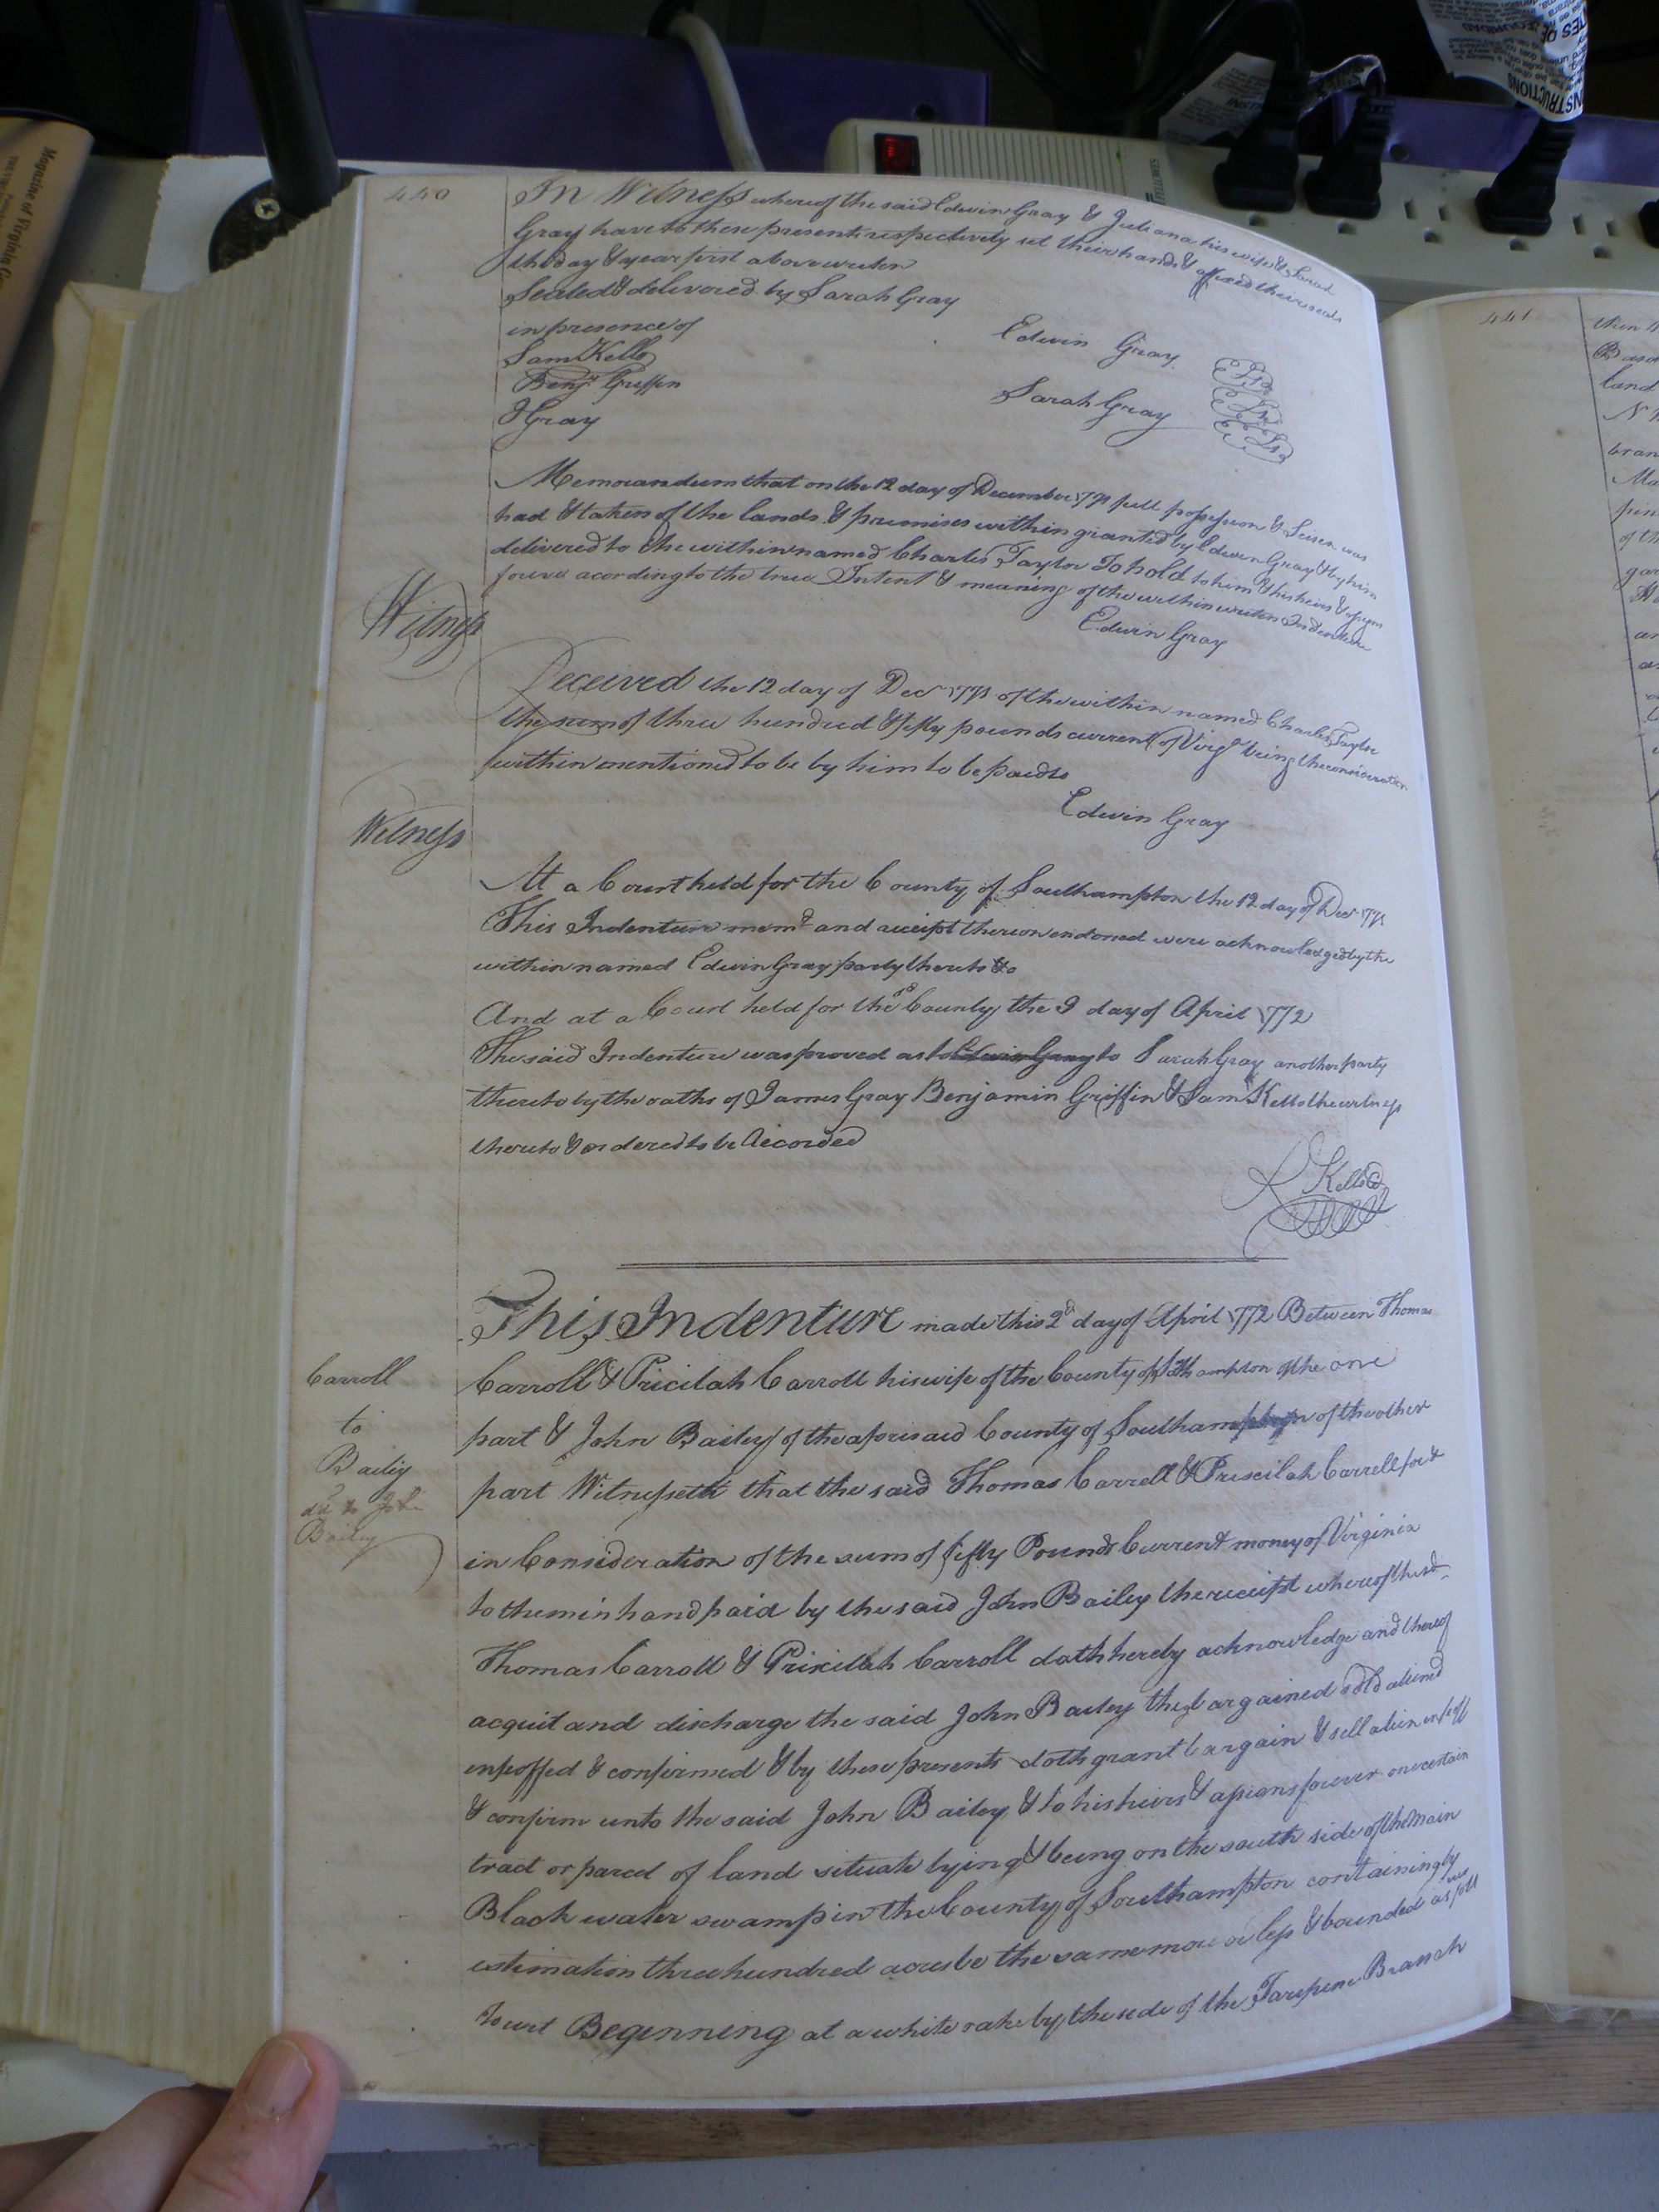 440
In Witness whereof the said Edwin Gray & Juliana his wife & Sarah
Gray have to these presents respectively set their hands & affixed their seals
the day & year first above writen
Sealed & delivered by Sarah Gray
in presence of
Edwin Gray
Sam Kello
Benjn Griffin
Sarah Gray
J Gray
Memorandum that on the 12 day of December 1771 full possession & Seisen was
had & taken of the lands & premises within granted by Edwin Gray & by him
delivered to the within named Charles Taylor To hold to him & his heirs & assigns
forever acording to the true Intent & meaning of the within writen Indenture
Edwin Gray
Witness
Received the 12 day of Decr 1771 of the within named Charles Taylor
the sum of three hundred & fifty pounds current of Virga being the consideration
within mentioned to be by him to be paid to
Edwin Gray
Witness
At a Court held for the County of Southampton the 12 day of Decr 1771
This Indenture memd and receipt thereon endorsed were acknowledged by the
within named Edwin Gray party thereto &c
And at a Court held for the sd County the 9 day of April 1772
The said Indenture was proved as to Edwin Gray to Sarah Gray another party
thereto by the oaths of James Gray Benjamin Griffin & Saml Kello the witness
thereto & ordered to be Recorded
Kello
This Indenture made this 2d day of April 1772 Between Thomas
Carroll
to
Bailey
Carroll & Pricilah Carroll his wife of the County of Sthampton of the one
part & John Bailey of the aforesaid County of Southampton of the other
part Witnesseth that the said Thomas Carrell & Priscilah Carrell for &
John
Bailey
in Consideration of the sum of fifty Pounds Current money of Virginia
to them in hand paid by the said John Bailey the receipt whereof the sd
Thomas Carroll & Priscillah Carroll doth hereby acknowledge and thereof
acquit and discharge the said John Bailey the bargained sold aliened
enfeoffed & confirmed & by these presents doth grant bargain & sell alien enfeoff
& confirm unto the said John Bailey & to his heirs & assigns forever one certain
tract or parcel of land situate lying & being on the south side of the Main
Black water swamp in the County of Southampton containing by
estimation three hundred acres be the same more or less & bounded as foll
ws
to wit Beginning at a white oake by the side of the Branch
441
Magazine of Virginia
INSTRUCTIONS
FELLOWES